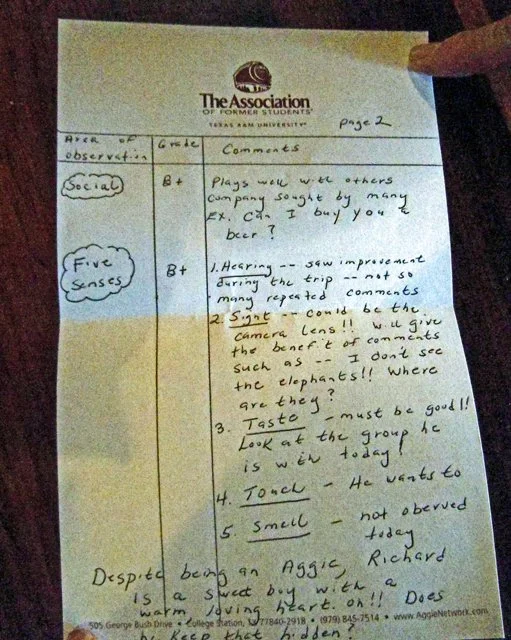 The Association
OF FORMER STUDENTS®
TEXAS A&M UNIVERSITY
page 2
Area of observation
Grade
Comments
Social
B+
Plays well with others
company sought by many
Ex. Can I buy you a
beer?
Five
Senses
B+
1. Hearing -- saw improvement
during the trip -- not so
many repeated comments
2. Sight -- could be the
camera lens!! will give
the benefit of comments
such as -- I don't see
the elephants!! Where
are they?
3. Taste - must be good!!
Look at the group he
is with today!
4. Touch - He wants to
5. Smell - not oberved
today
Despite being an Aggie, Richard
is a sweet boy with a
warm loving heart. oh!! Does
505 George Bush Drive • College Station, TX 77840-2918 • (979) 845-7514 • www.AggieNetwork.com
he keep that hidden?